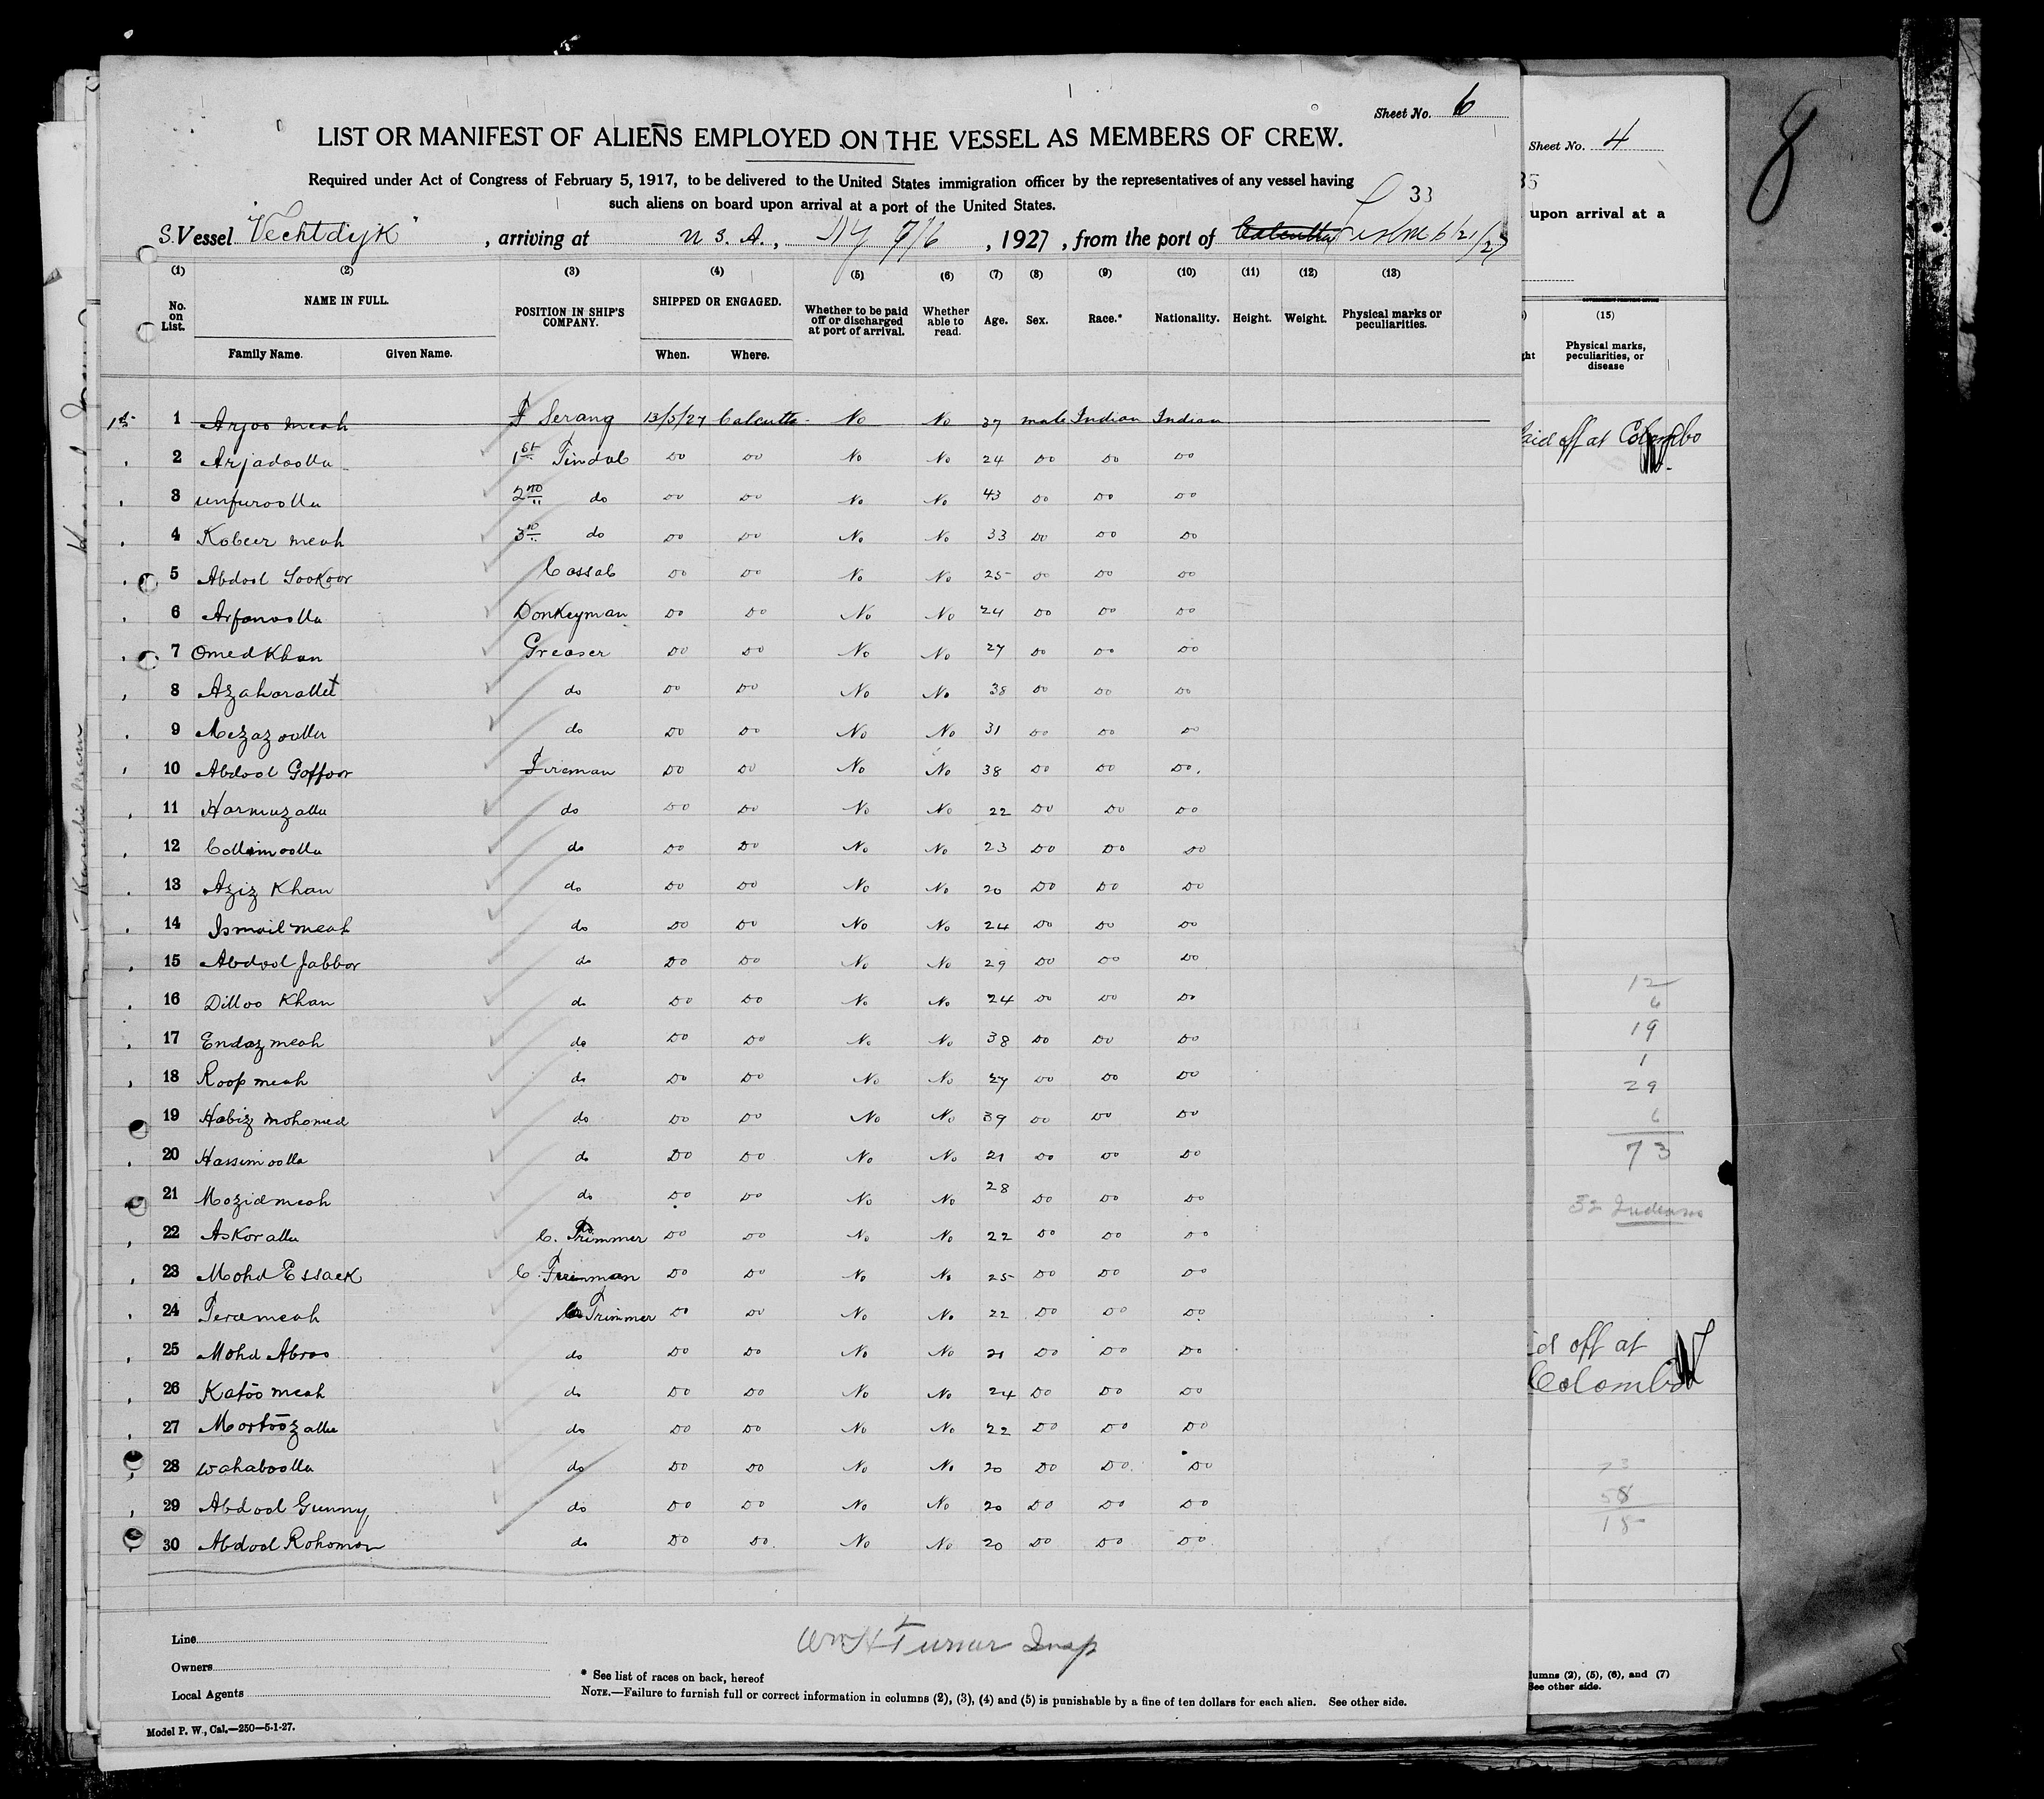 Sheet No. 6
LIST OR MANIFEST OF ALIENS EMPLOYED ON THE VESSEL AS MEMBERS OF CREW.
Required under Act of Congress of February 5, 1917, to be delivered to the United States immigration officer by the representatives of any vessel having
such aliens on board upon arrival at a port of the United States.
33
S. Vessel "Vechtdijk", arriving at U.S.A., NY 7/6, 1927, from the port of Calcutta 6/21/27
(1) (2) (3) (4) (5) (6) (7) (8) (9) (10) (11) (12) (13)
No. on List. NAME IN FULL. POSITION IN SHIP'S COMPANY. SHIPPED OR ENGAGED. Whether to be paid off or discharged at port of arrival. Whether able to read. Age. Sex. Race.* Nationality. Height. Weight. Physical marks or peculiarities.
Family Name. Given Name. When. Where.
1 Arjoo meah F Serang 13/5/27 Calcutta No No 37 male Indian Indian
2 Arjadoolla 1st Tindal Do Do No No 24 Do Do Do
3 unfuroolla 2nd do Do Do No No 43 Do Do Do
4 Kobeer meah 3rd do Do Do No No 33 Do Do Do
5 Abdool Sookoor Cassab Do Do No No 25 Do Do Do
6 Arfanoolla Donkeyman Do Do No No 24 Do Do Do
7 Omed Khan Greaser Do Do No No 27 Do Do Do
8 Azaharallee do Do Do No No 38 Do Do Do
9 Mezazoolla do Do Do No No 31 Do Do Do
10 Abdool Goffoor Fireman Do Do No No 38 Do Do Do.
11 Harmuzalla do Do Do No No 22 Do Do Do
12 Collimoolla do Do Do No No 23 Do Do Do
13 Aziz Khan do Do Do No No 20 Do Do Do
14 Ismail meah do Do Do No No 24 Do Do Do
15 Abdool Jabbor do Do Do No No 29 Do Do Do
16 Dilloo Khan do Do Do No No 24 Do Do Do
17 Endaz meah do Do Do No No 38 Do Do Do
18 Roop meah do Do Do No No 27 Do Do Do
19 Habiz mohomed do Do Do No No 39 Do Do Do
20 Hassimoolla do Do Do No No 21 Do Do Do
21 Mozid meah do Do Do No No 28 Do Do Do
22 Askoralla C. Trimmer Do Do No No 22 Do Do Do
23 Mohd Essack C Do Do No No 25 Do Do Do
24 Teremeah Trimmer Do Do No No 22 Do Do Do
25 Mohd Abroo do Do Do No No 21 Do Do Do
26 Katoo meah do Do Do No No 24 Do Do Do
27 Mortoozallee do Do Do No No 22 Do Do Do
28 wahaboolla do Do Do No No 20 Do Do Do
29 Abdool Gunny do Do Do No No 20 Do Do Do
30 Abdool Rohomon do Do Do No No 20 Do Do Do
Wm H Turner Insp
Line
Owners
Local Agents
* See list of races on back, hereof
NOTE.—Failure to furnish full or correct information in columns (2), (3), (4) and (5) is punishable by a fine of ten dollars for each alien. See other side.
Model P. W., Cal.—250—5-1-27.
Sheet No. 4
35
upon arrival at a
(15)
Physical marks,
peculiarities, or
disease
ght
aid off at Colombo
12
6
19
1
29
6
73
52 Indians
id off at
Colombo
73
58
15
lumns (2), (5), (6), and (7)
See other side.
8